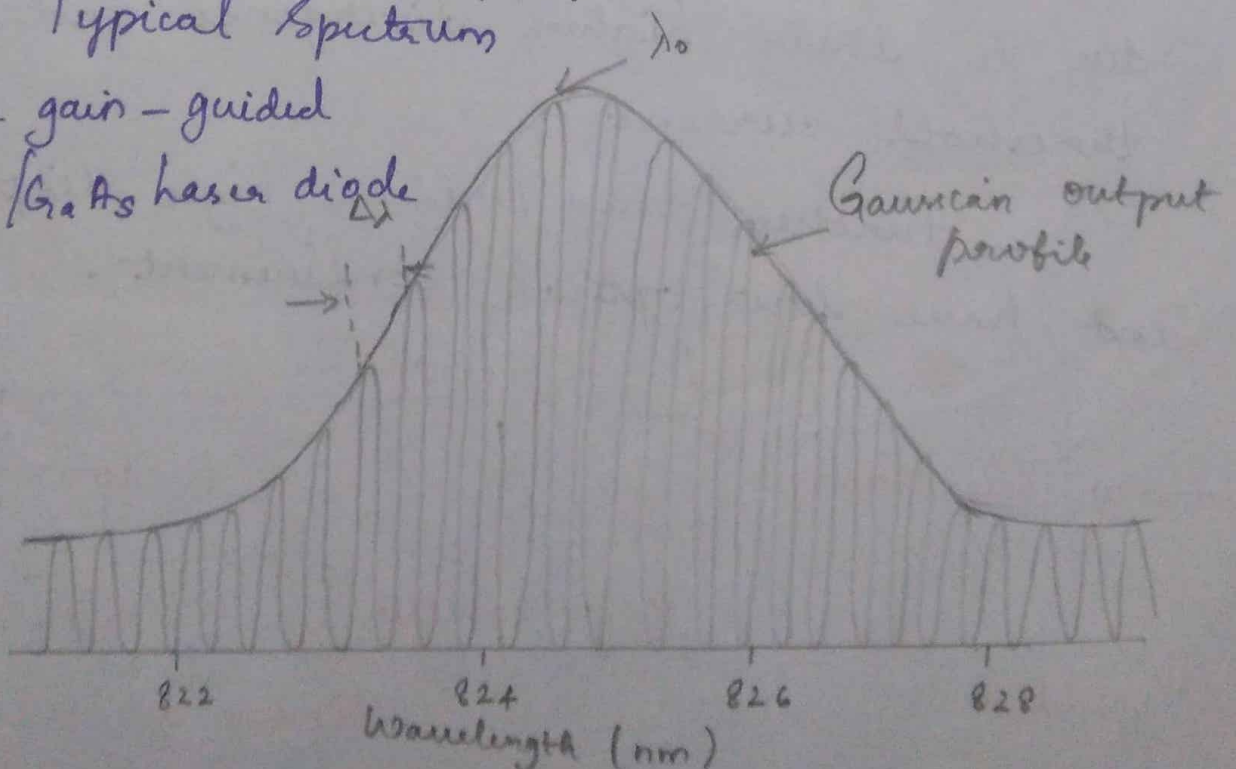 Typical Spectrum
gain-guided
/GaAs Laser diode
Δλ
λ₀
Gaussian output
profile
822 824 826 828
Wavelength (nm)